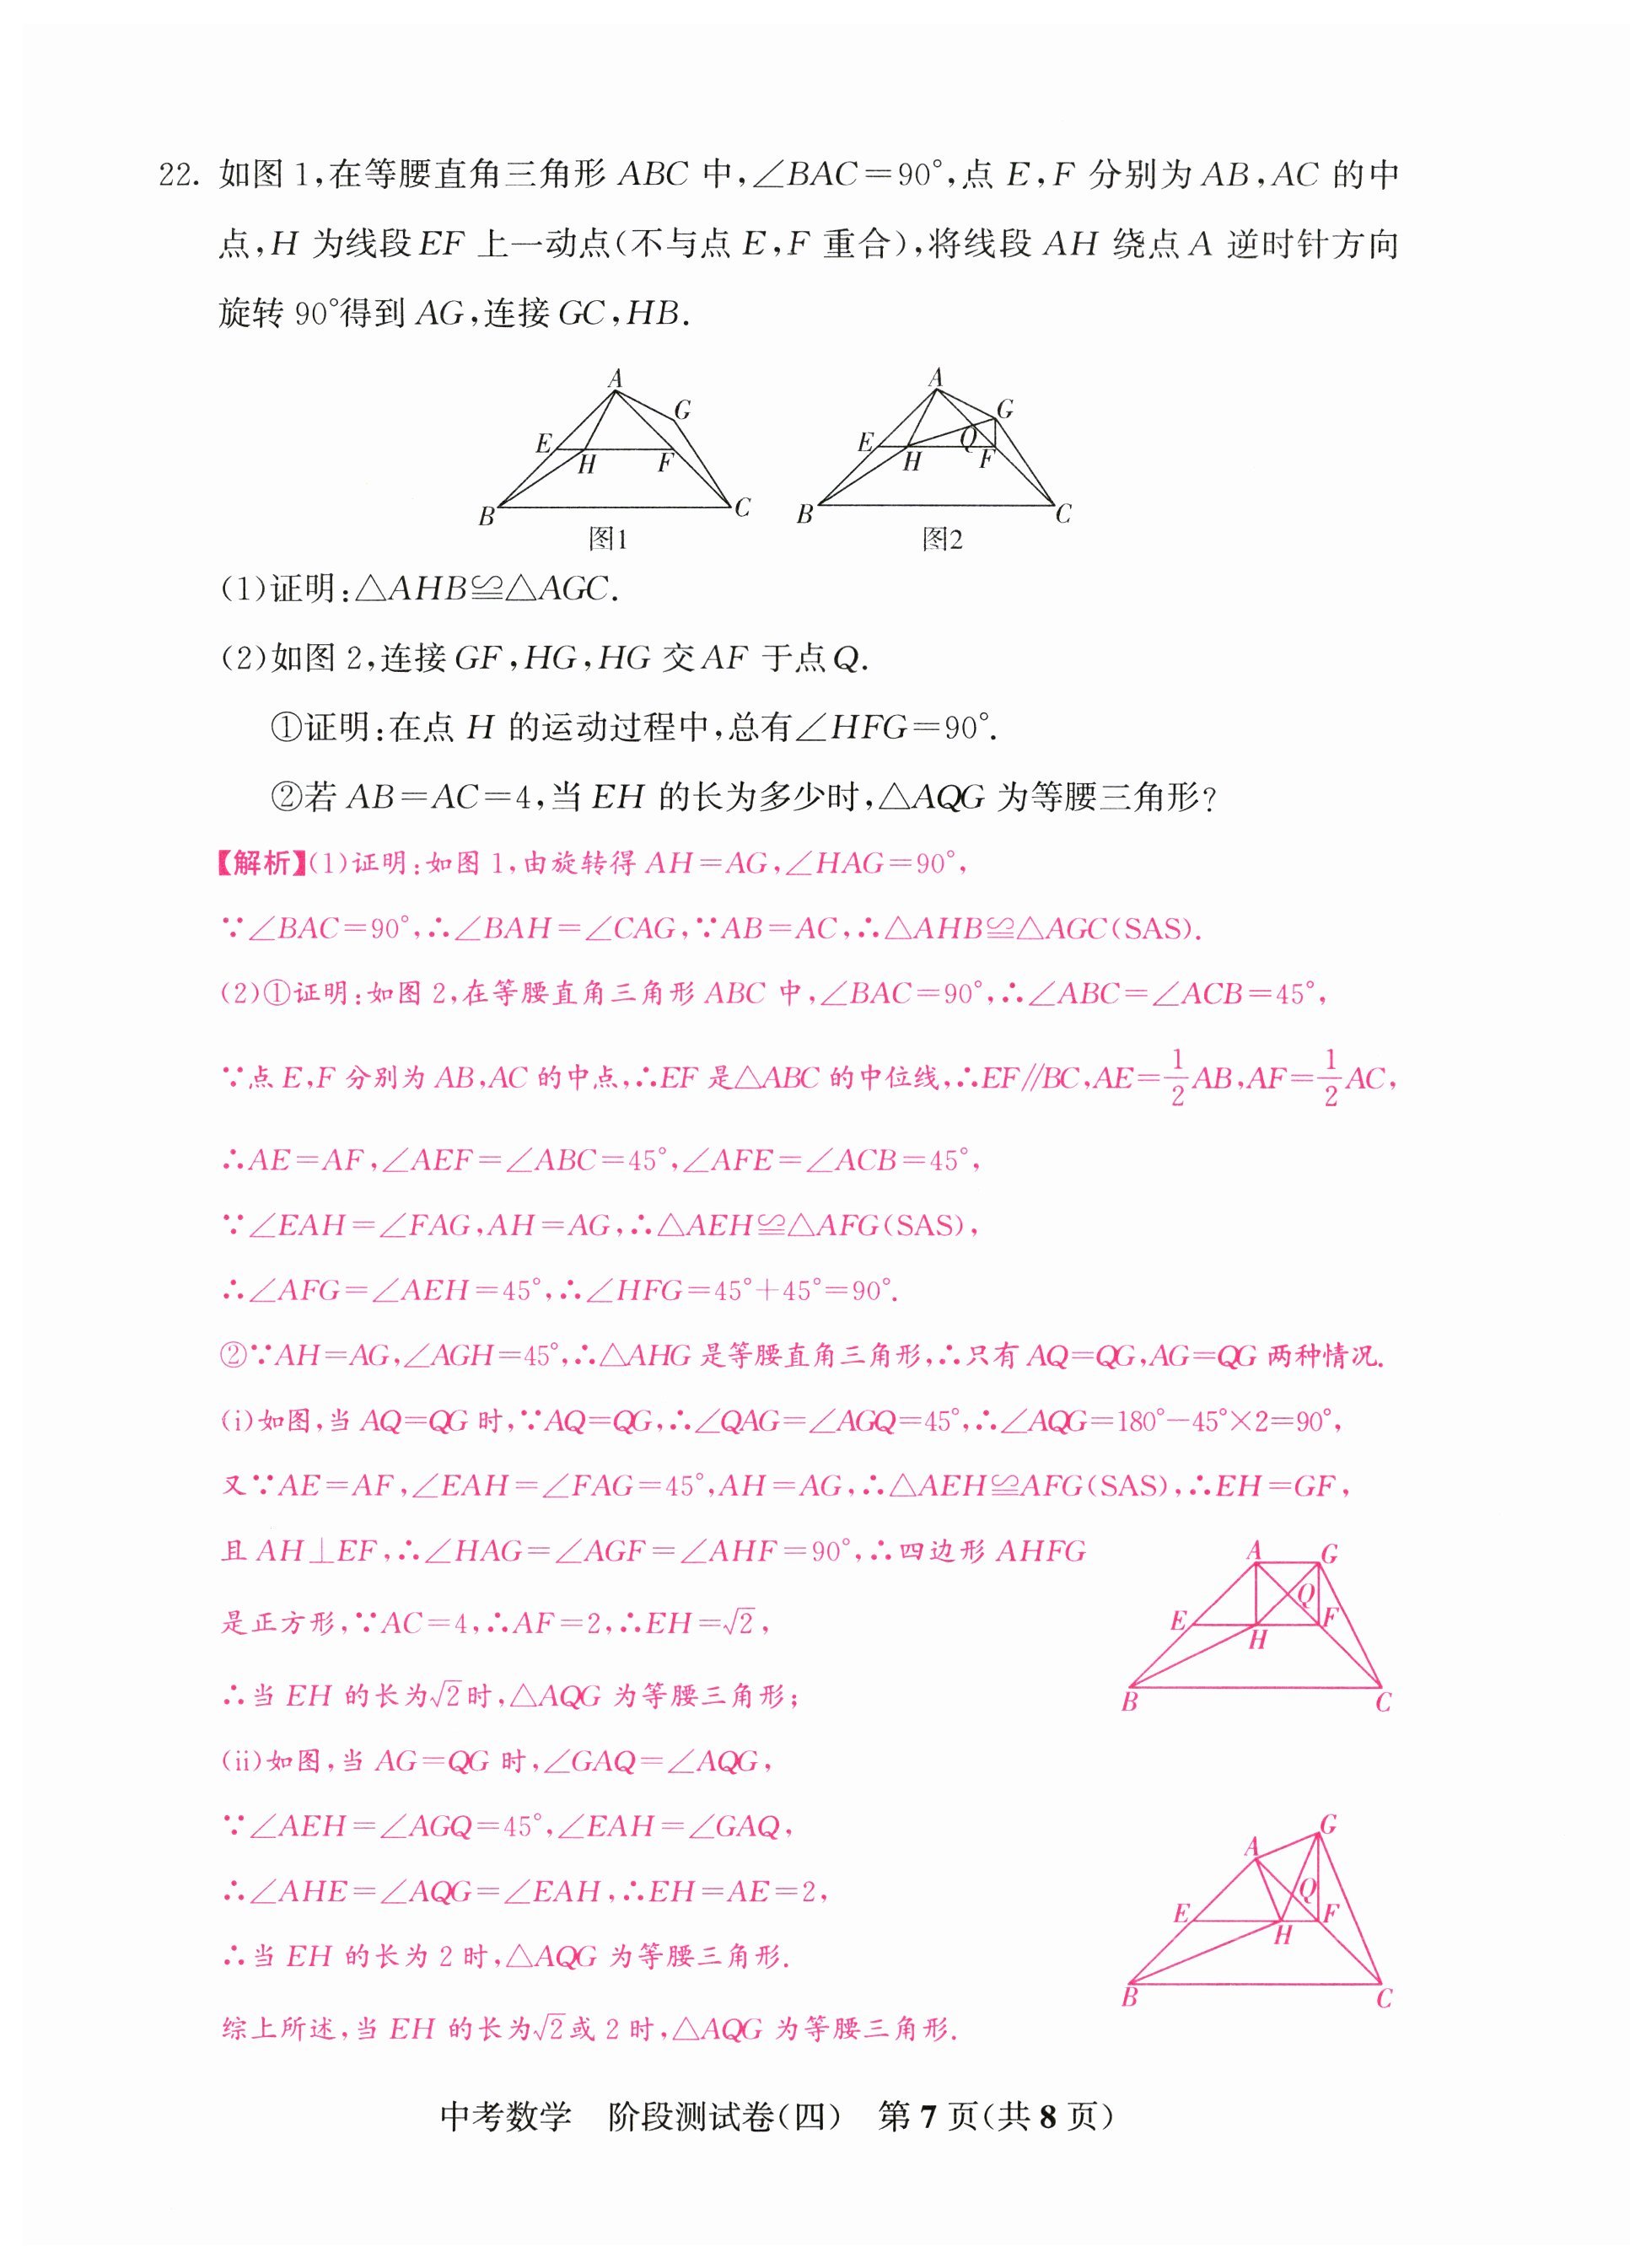 22. 如图 1,在等腰直角三角形 ABC 中,∠BAC=90°,点 E,F 分别为 AB,AC 的中
点,H 为线段 EF 上一动点(不与点 E,F 重合),将线段 AH 绕点 A 逆时针方向
旋转 90°得到 AG,连接 GC,HB.
A
G
E
H
F
B
C
图1
A
G
E
H
Q
F
B
C
图2
(1)证明:△AHB≌△AGC.
(2)如图 2,连接 GF,HG,HG 交 AF 于点 Q.
①证明:在点 H 的运动过程中,总有∠HFG=90°.
②若 AB=AC=4,当 EH 的长为多少时,△AQG 为等腰三角形?
【解析】(1)证明:如图 1,由旋转得 AH=AG,∠HAG=90°,
∵∠BAC=90°,∴∠BAH=∠CAG,∵AB=AC,∴△AHB≌△AGC(SAS).
(2)①证明:如图 2,在等腰直角三角形 ABC 中,∠BAC=90°,∴∠ABC=∠ACB=45°,
∵点 E,F 分别为 AB,AC 的中点,∴EF 是△ABC 的中位线,∴EF∥BC,AE=1/2AB,AF=1/2AC,
∴AE=AF,∠AEF=∠ABC=45°,∠AFE=∠ACB=45°,
∵∠EAH=∠FAG,AH=AG,∴△AEH≌△AFG(SAS),
∴∠AFG=∠AEH=45°,∴∠HFG=45°+45°=90°.
②∵AH=AG,∠AGH=45°,∴△AHG 是等腰直角三角形,∴只有 AQ=QG,AG=QG 两种情况.
(i)如图,当 AQ=QG 时,∵AQ=QG,∴∠QAG=∠AGQ=45°,∴∠AQG=180°−45°×2=90°,
又∵AE=AF,∠EAH=∠FAG=45°,AH=AG,∴△AEH≌AFG(SAS),∴EH=GF,
且 AH⊥EF,∴∠HAG=∠AGF=∠AHF=90°,∴四边形 AHFG
是正方形,∵AC=4,∴AF=2,∴EH=√2,
∴当 EH 的长为√2时,△AQG 为等腰三角形;
A
G
Q
E
H
F
B
C
(ii)如图,当 AG=QG 时,∠GAQ=∠AQG,
∵∠AEH=∠AGQ=45°,∠EAH=∠GAQ,
∴∠AHE=∠AQG=∠EAH,∴EH=AE=2,
∴当 EH 的长为 2 时,△AQG 为等腰三角形.
G
A
Q
E
H
F
B
C
综上所述,当 EH 的长为√2或 2 时,△AQG 为等腰三角形.
中考数学 阶段测试卷(四) 第 7 页(共 8 页)